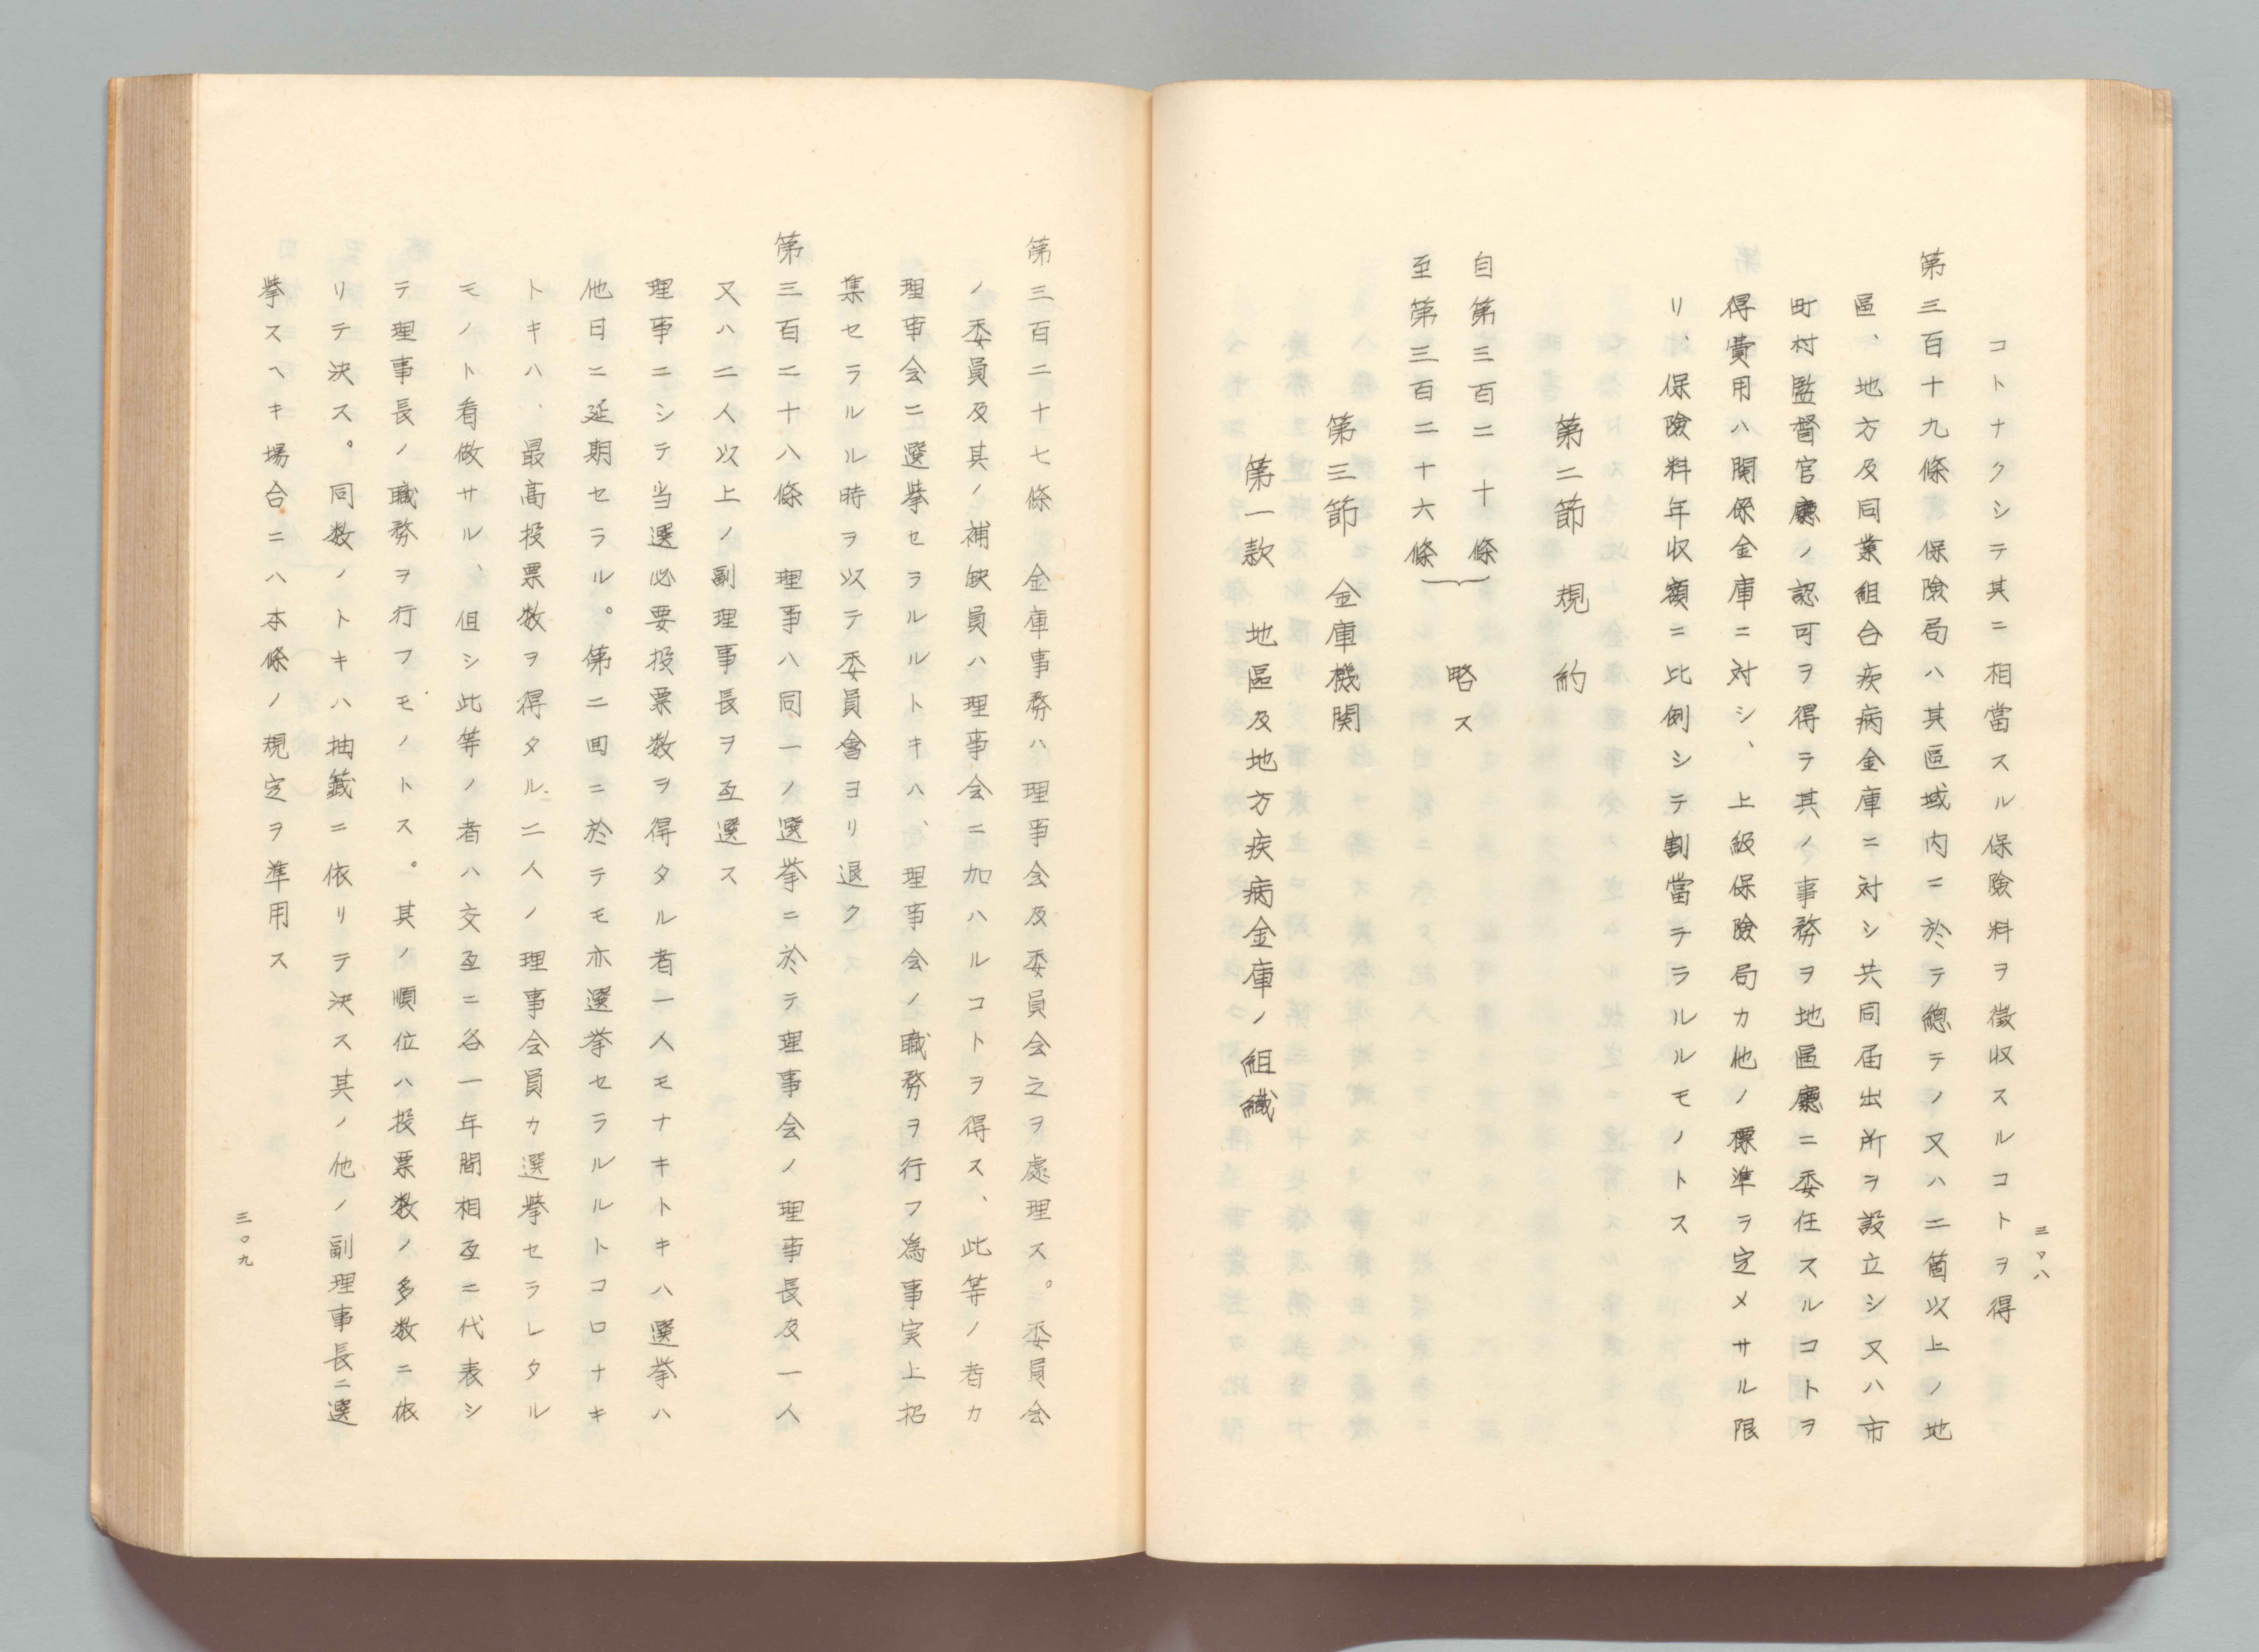 三〇八
コトナクシテ其ニ相當スル保險料ヲ徴収スルコトヲ得
第三百十九條 保險局ハ其區域内ニ於テ總テノ又ハ二箇以上ノ地
區、地方及同業組合疾病金庫ニ対シ共同届出所ヲ設立シ又ハ市
町村監督官廳ノ認可ヲ得ラ其ノ事務ヲ地區廳ニ委任スルコトヲ
得費用ハ関係金庫ニ対シ、上級保險局カ他ノ標準ヲ定メサル限
リ、保險料年収額ニ比例シテ割當テラルルモノトス
第二節 規約
自第三百二十條
至第三百二十六條
略ス
第三節 金庫機関
第一款 地區及地方疾病金庫ノ組織
第三百二十七條 金庫事務ハ理事会及委員会之ヲ處理ス。委員会
ノ委員及其ノ補缺員ハ理事会ニ加ハルコトヲ得ス、此等ノ者カ
理事会ニ選挙セラルルトキハ、理事会ノ職務ヲ行フ為事実上招
集セラルル時ヲ以テ委員會ヨリ退ク
第三百二十八條 理事ハ同一ノ選挙ニ於テ理事会ノ理事長及一人
又ハ二人以上ノ副理事長ヲ互選ス
理事ニシテ当選必要投票数ヲ得タル者一人モナキトキハ選挙ハ
他日ニ延期セラル。第二回ニ於テモ亦選挙セラルルトコロナキ
トキハ、最高投票数ヲ得タル二人ノ理事会員カ選挙セラレタル
モノト看做サル、但シ此等ノ者ハ交互ニ各一年間相互ニ代表シ
テ理事長ノ職務ヲ行フモノトス。其ノ順位ハ投票数ノ多数ニ依
リテ決ス。同数ノトキハ抽籤ニ依リテ決ス其ノ他ノ副理事長ニ選
挙スヘキ場合ニハ本條ノ規定ヲ準用ス
三〇九